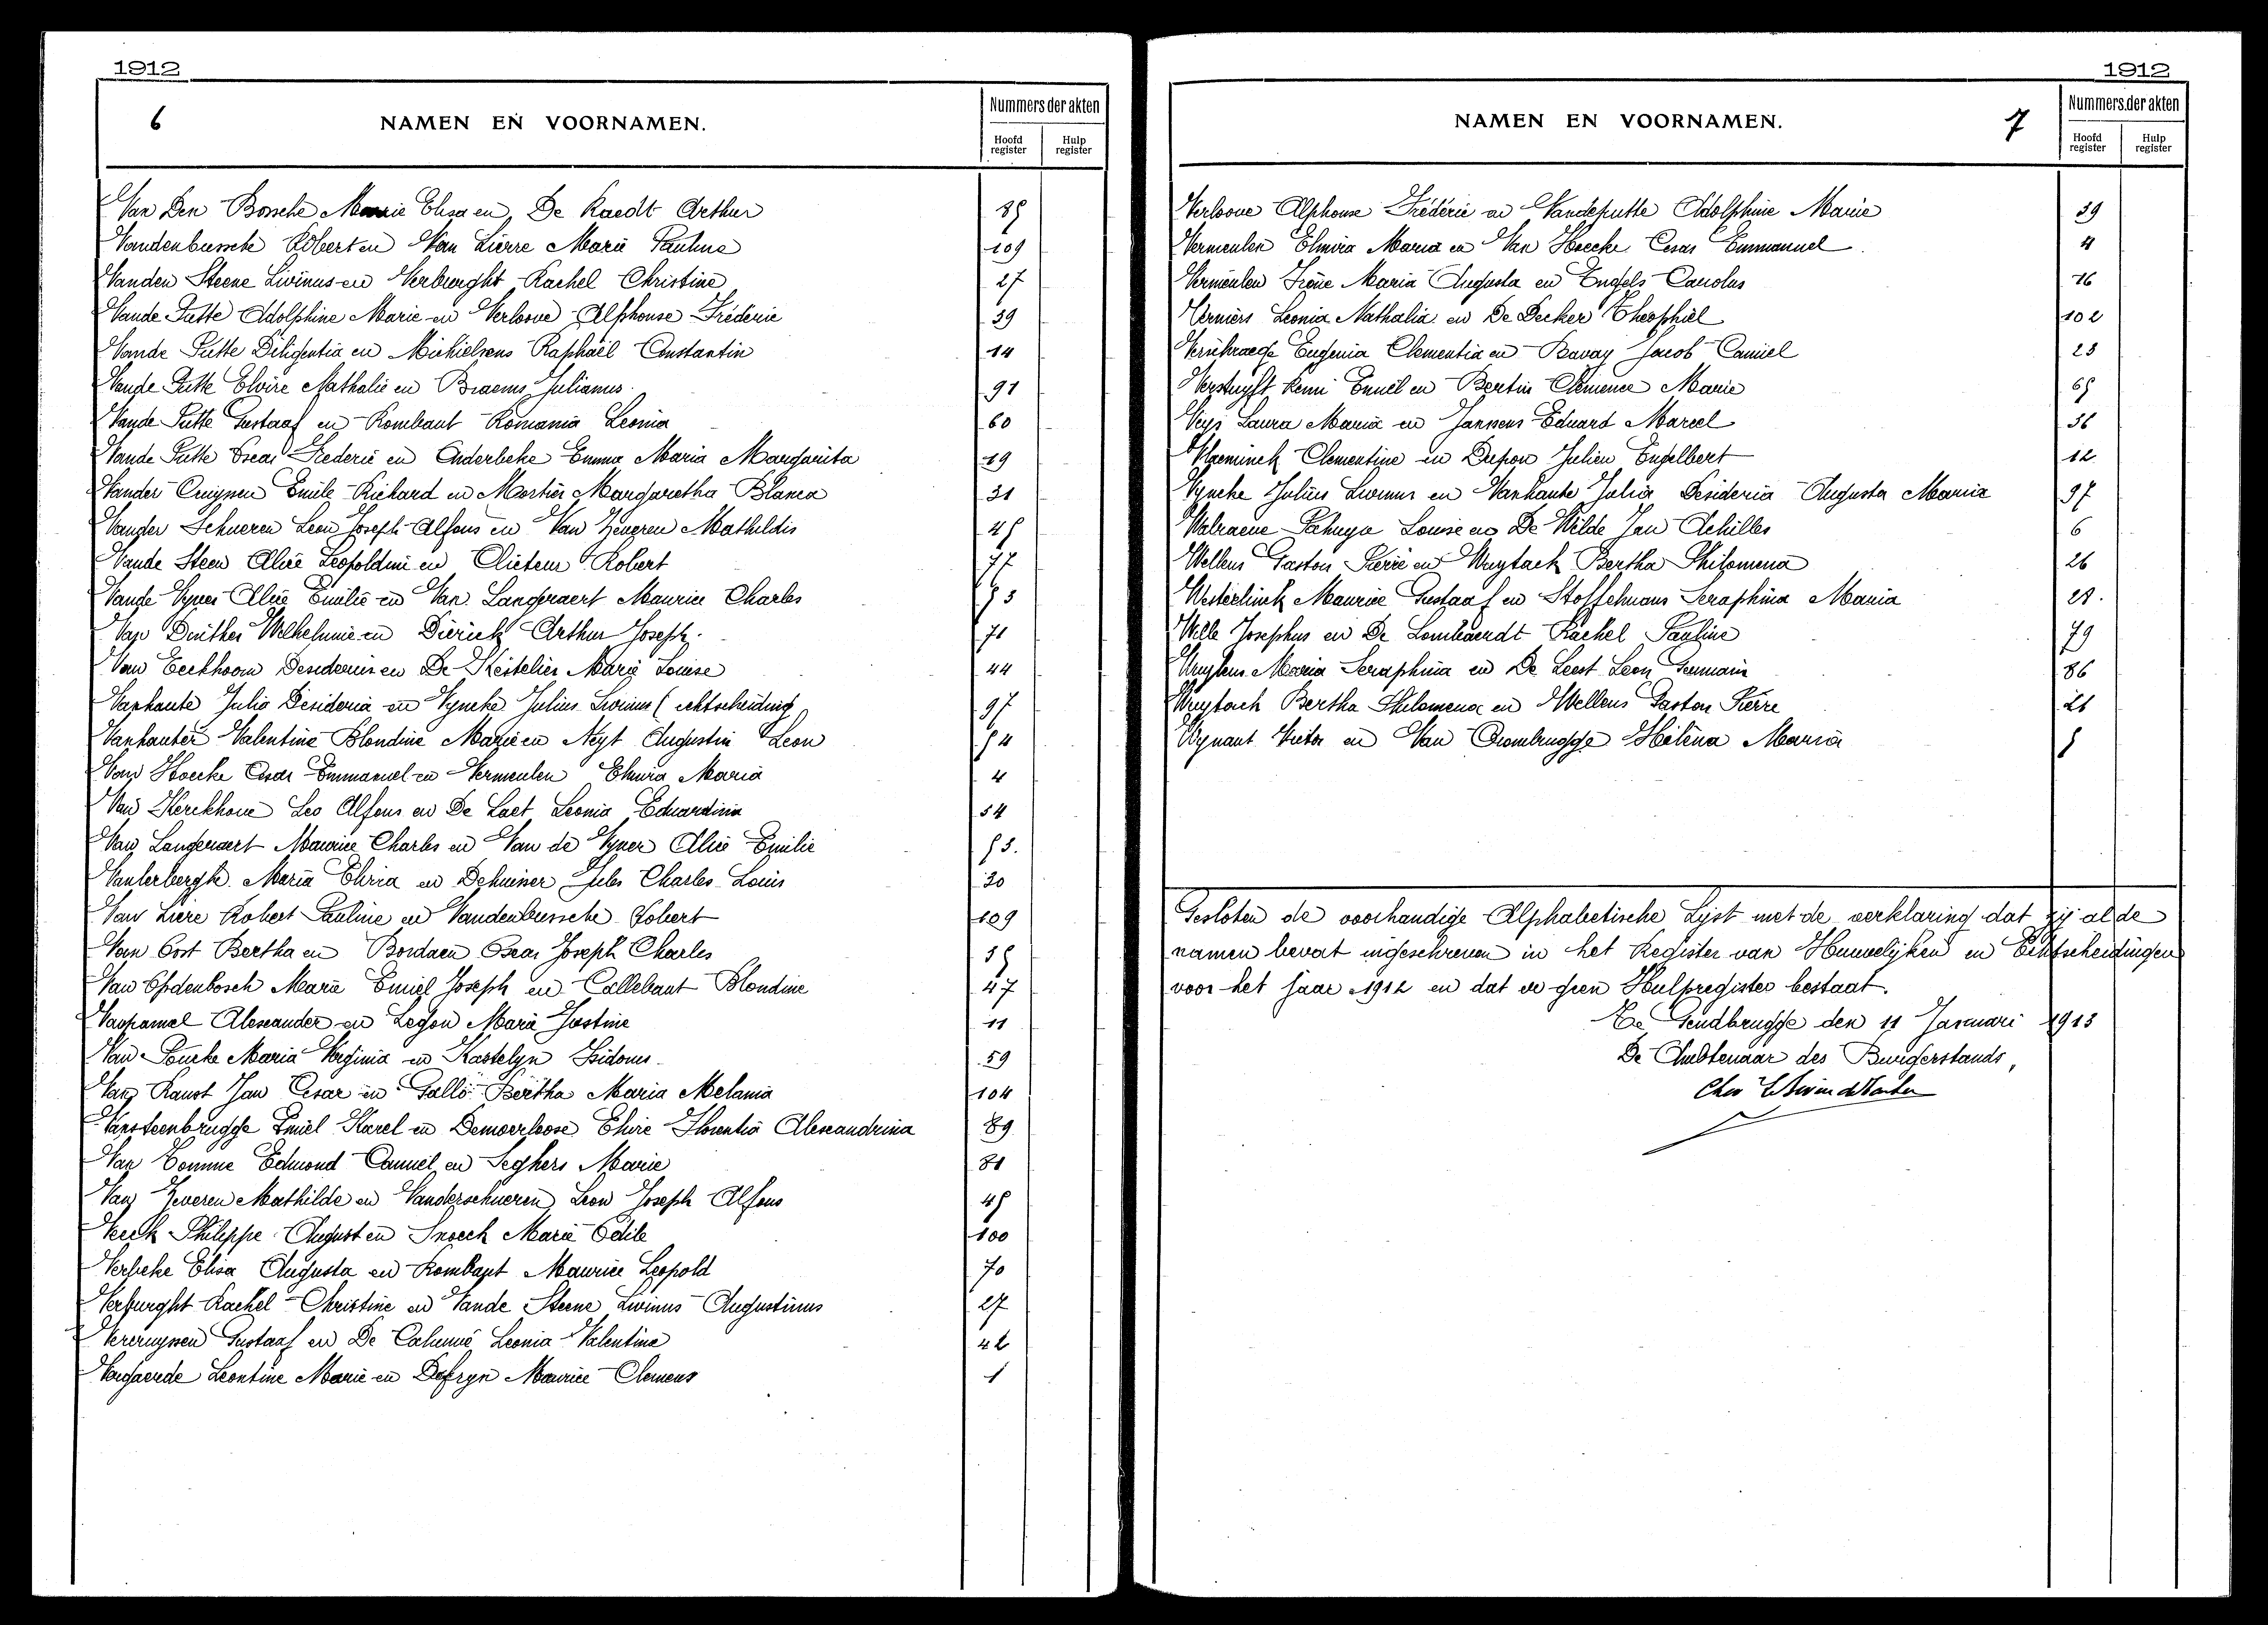 1912
6
NAMEN EN VOORNAMEN.
Nummers der akten
Hoofd register
Hulp register
Van Den Bossche Marie Elisa en De Raedt Arthur 85
Vandenbussche Robert en Van Lierre Marie Pauline 109
Vanden Steene Livinus en Verburght Rachel Christine 27
Vande Putte Adolphine Marie en Verloove Alphonse Fréderic 39
Vande Putte Diligentia en Michielsens Raphaël Constantin 14
Vande Putte Elvire Nathalie en Braems Julianus 91
Vande Putte Gustaaf en Rombaut Romania Leonia 60
Vande Putte Oscar Frederic en Anderbeke Emma Maria Margarita 19
Vander Cruyssen Emile Richard en Mortier Margaretha Blanca 31
Vander Schueren Leon Joseph Alfons en Van Zeveren Mathildis 45
Vande Steen Alice Leopoldine en Clieteur Robert 77
Vande Vyver Alice Emilie en Van Langeraert Maurice Charles 53
Van Dinther Wilhelmine en Dierick Arthur Joseph. 71
Van Eeckhoorn Desiderius en De Kestelier Marie Louise 44
Vanhaute Julia Desideria en Vyncke Julius Livinus (echtscheiding 97
Vanhauter Valentine Blondine Marie en Neyt Augustin Leon 54
Van Hoecke Cesar Emmanuel en Vermeulen Elmira Maria 4
Van Kerckhove Leo Alfons en De Laet Leonia Eduardina 34
Van Langeraert Maurice Charles en Van de Vyver Alice Emilie 53.
Vanlerberghe Maria Elvira en Dehuisser Jules Charles Louis 30
Van Liere Robert Pauline en Vandenbussche Robert 109
Van Oost Bertha en Bordaen Oscar Joseph Charles 35
Van Opdenbosch Marie Emiel Joseph en Callebaut Blondine 47
Vanpamel Alexander en Legon Marie Justine 11
Van Poucke Maria Virginia en Kastelyn Isidorus 59
Van Ranst Jan Cesar en Gallo Bertha Maria Melania 104
Vansteenbrugge Emiel Karel en Demoerloose Elvire Florentia Alexandrina 89
Van Tomme Edmond Camiel en Seghers Marie 81
Van Zeveren Mathilde en Vanderschueren Leon Joseph Alfons 45
Veeck Philippe August en Snoeck Marie Odile 100
Verbeke Elisa Augusta en Rombaut Maurice Leopold 70
Verburght Rachel Christine en Vande Steene Livinus Augustinus 27
Vercruyssen Gustaaf en De Caluwé Leonia Valentine 42
Vergaerde Leontine Marie en Defryn Maurice Clemens 1
1912
NAMEN EN VOORNAMEN.
7
Nummers der akten
Hoofd register
Hulp register
Verloove Alphonse Fréderic en Vandeputte Adolphine Marie 39
Vermeulen Elmira Maria en Van Hoecke Cesar Emmanuel 4
Vermeulen Irène Maria Augusta en Engels Carolus 76
Verniers Leonia Nathalia en De Decker Theophiel 102
Verschraege Eugenia Clementia en Bavay Jacob Camiel 23
Verstuyft Remi Emiel en Bertin Clemence Marie 65
Veys Laura Maria en Janssens Eduard Marcel 36
Vlaeminck Clementine en Dupon Julien Engelbert 12
Vyncke Julius Livinus en Vanhaute Julia Desideria Augusta Maria 97
Walraeve Louise en De Wilde Jan Achilles 6
Wellens Gaston Pierre en Wuytack Bertha Philomena 26
Westerlinck Maurice Gustaaf en Stoffelmans Seraphina Maria 28.
Wille Josephus en De Lombaerdt Rachel Pauline 79
Wuytens Maria Seraphina en De Leest Leon Germain 86
Wuytack Bertha Philomena en Wellens Gaston Pierre 26
Wynant Victor en Van Crombrugge Hélèna Maria 5
Gesloten de voorhandige Alphabetische Lyst met de verklaring dat zij al de
namen bevat ingeschreven in het Register van Huwelijken en Echtscheidingen
voor het jaar 1912 en dat er geen Hulpregister bestaat.
Te Gendbrugge den 11 Januari 1913
De Ambtenaar des Burgerstands,